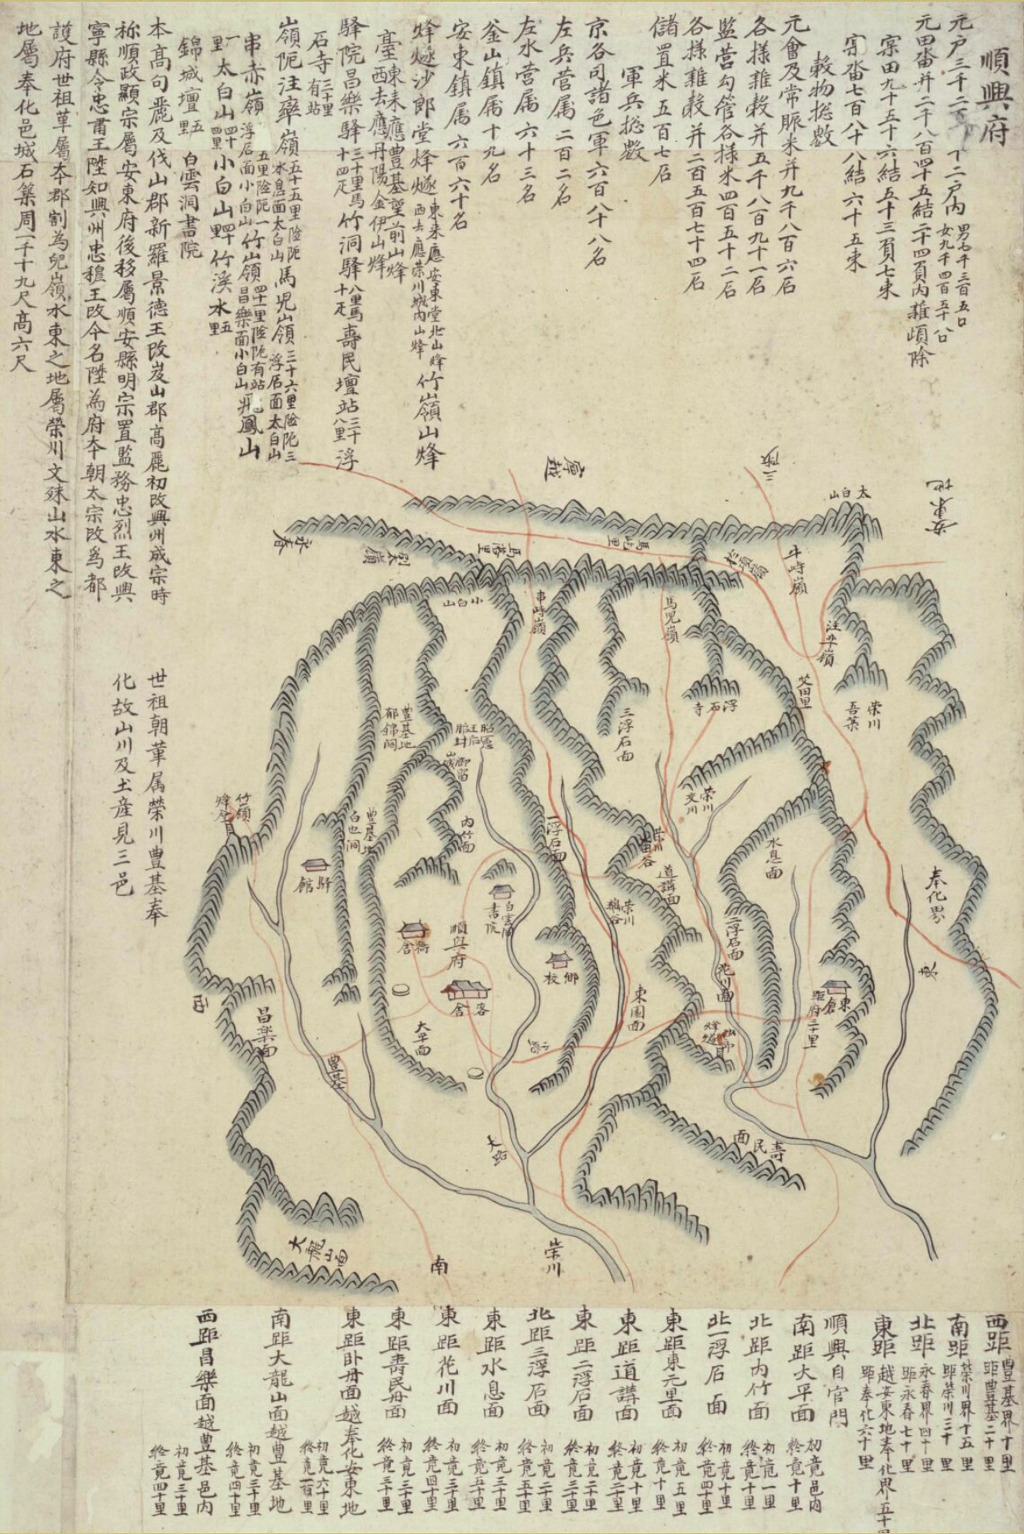 順興府
元戶三千二百 十二戶內 男七千三百五口 女九千四百五十 口
元田畓并二千八百四十五結二十四負內雜頉除
宲田九十五十六結五十三負七束
宲畓七百八十八結六十五束
穀物摠數
元會及常賑米并九千八百六石
各樣雜穀并五千八百九十一石
監營勾管各樣米四百五十二石
各樣雜穀并二百五百七十四石
儲置米五百七石
軍兵摠數
京各司諸色軍六百八十八名
左兵營属二百二名
左水營属六十三名
釜山鎮属十九名
安東鎮属六百六十名
烽燧沙郎堂烽燧 東來應安東堂北山烽 西去應榮川城內山烽 竹嶺山烽
臺 東來應豊基望前山烽 西去應丹陽金伊山烽
驛院昌樂驛 三十里馬十四疋 竹洞驛 八里馬十疋 壽民壇站 三十八里 浮
石寺 三十里有站
嶺阨注乼嶺 五十五里險阨 水息面太白山 馬兒嶺 三十六里險阨三 浮石面太白山
串赤嶺 五里險阨 浮石面小白山 竹嶺 四十里險阨有站 昌樂面小白山 飛鳳山
一里 太白山 四十里 小白山 竹溪水 五里
錦城壇 五里 白雲洞書院
本高句麗及伐山郡新羅景德王改岌山郡高麗初改興州成宗時
称順政顯宗屬安東府後移屬順安縣明宗置監務忠烈王改興
寧縣令忠肅王陞知興州忠穆王改今名陞為府本朝太宗改為都
護府世祖革屬本郡割為兒嶺水東之地屬榮川文殊山水東之
地屬奉化邑城石築周一千十九尺高六尺
世祖朝革属榮川豊基奉
化故山川及土産見三邑
三陟
寧越
安東地
太白山
永春
馬兒里
串赤嶺
小白山
馬兒嶺
注乼嶺
浮石寺
榮川
三浮石面
豊基地
內竹面
一浮石面
水息面
道講面
二浮石面
奉化界
東
竹嶺烽臺
驛館
白雲洞書院
順興府
衙舍
客舍
鄕校
花川面
東倉
距府二十里
東園面
西
昌樂面
大平面
豊基
大路
壽民面
大龍山面
南
榮川
西距 豊基界十里 距豊基二十里
南距 榮川界十五里 距榮川三十里
北距 永春界四十里 距永春七十里
東距 越安東地奉化界五十里 距奉化六十里
順興自官門
南距大平面 初竟邑內 終竟十里
北距內竹面 初竟一里 終竟十里
北一浮石面 初竟十里 終竟四十里
東距東元里面 初竟五里 終竟十里
東距道講面 初竟十里 終竟二十里
東距二浮石面 初竟二十里 終竟三十里
北距三浮石面 初竟二十里 終竟五十里
東距水息面 初竟三十里 終竟五十里
東距花川面 初竟三十里 終竟四十里
東距壽民丹面 初竟二十里 終竟三十里
東距臥丹面越奉化安東地 初竟六十里 終竟一百里
南距大龍山面越豊基地 初竟三十里 終竟四十里
西距昌樂面越豊基邑內 初竟三十里 終竟四十里